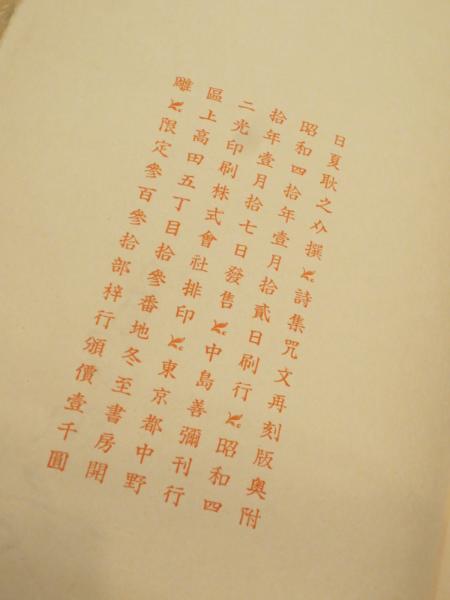 日夏耿之介撰詩集咒文再刻版奥附
昭和四拾年壹月拾貳日刷行昭和四
拾年壹月拾七日發售中島善彌刊行
二光印刷株式會社排印東京都中野
區上高田五丁目拾參番地冬至書房開
雕限定參百參拾部梓行頒價壹千圓